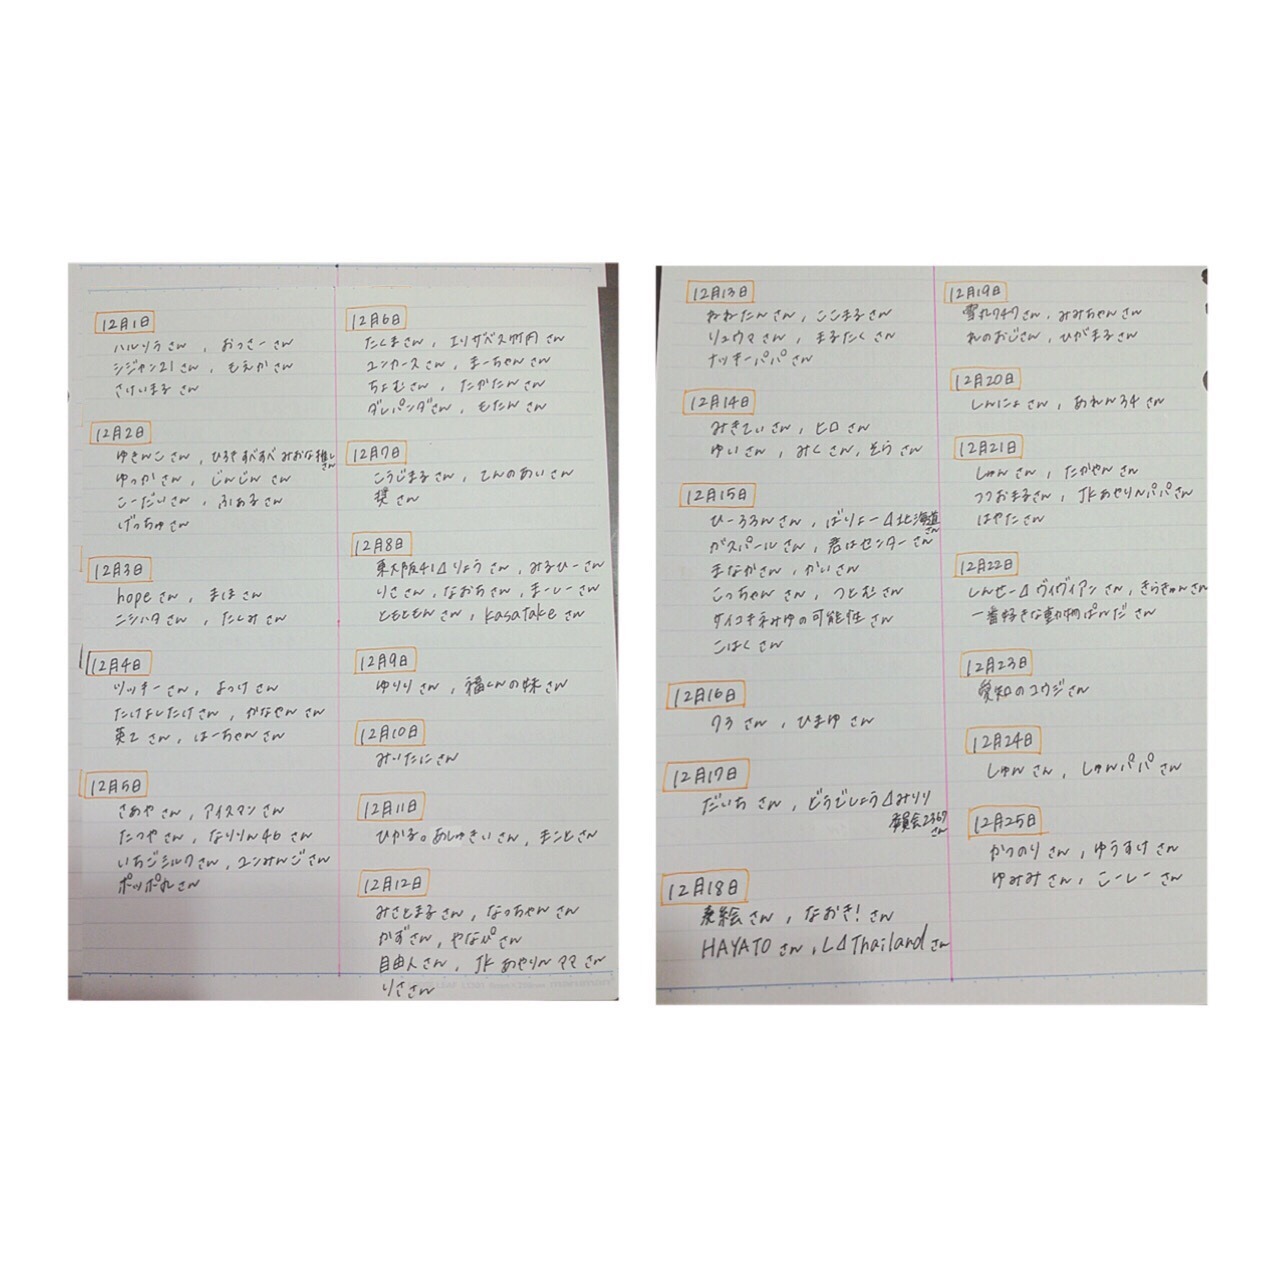 12月1日
ハルソラさん , おっさーさん
シジャン21さん , もえかさん
さけいまる さん
12月2日
ゆきんこさん , ひろやすべすべみおな推し
さん
ゆっかさん , じんじんさん
こーだいさん , ふぁるさん
げっちゅさん
12月3日
hopeさん , まほさん
ニシハタさん , たしみさん
12月4日
ツッキーさん , よっけさん
たけよしたけさん , かなやんさん
さん , はーちゃんさん
12月5日
さあやさん , アイスマンさん
たつやさん , なりりん46さん
いちごミルクさん , ユンみんごさん
ポッポ丸さん
12月6日
たくまさん , エリザベス竹内さん
ユンカースさん , まーちゃんさん
ちょむさん , たがたんさん
ダレパンダさん , もたんさん
12月7日
こうじまるさん , てんのあいさん
奨さん
12月8日
東大阪41⊿りょうさん , みるひーさん
りささん , なおちさん , まーしーさん
ともともんさん , kasatakeさん
12月9日
ゆりりさん , 福くんの妹さん
12月10日
みいたにさん
12月11日
ひかる。あしゅきいさん , まことさん
12月12日
みさとまるさん , なっちゃんさん
かずさん , やなぴさん
自由人さん , JKあやりんママさん
りささん
12月13日
ねねたんさん , ここまるさん
リュウマさん , まるたくさん
ナッキーパパさん
12月14日
みきてぃさん , ヒロさん
ゆいさん , みくさん , そらさん
12月15日
ひーろろんさん , ばりょー⊿北海道
さん
ガスパールさん , 君はセンターさん
まなかさん , かいさん
こっちゃんさん , つとむさん
ダイコキネみゆの可能性さん
こはくさん
12月16日
クろさん , ひまゆさん
12月17日
だいちさん , どうでしょう⊿みりり
委員会2367
さん
12月18日
麦絵さん , なおき！さん
HAYATOさん , L⊿Thailandさん
12月19日
さん , みみちゃんさん
れのおじさん , ひがまるさん
12月20日
しんにょさん , あれん34さん
12月21日
しゅんさん , たかやんさん
つつおまるさん , JKあやりんパパさん
はやたさん
12月22日
しんせー⊿ヴィヴィアンさん , きらきゅんさん
一番好きな動物ぱんださん
12月23日
愛知のユウジさん
12月24日
しゅんさん , しゅんパパさん
12月25日
かつのりさん , ゆうすけさん
ゆみみさん , こーしーさん